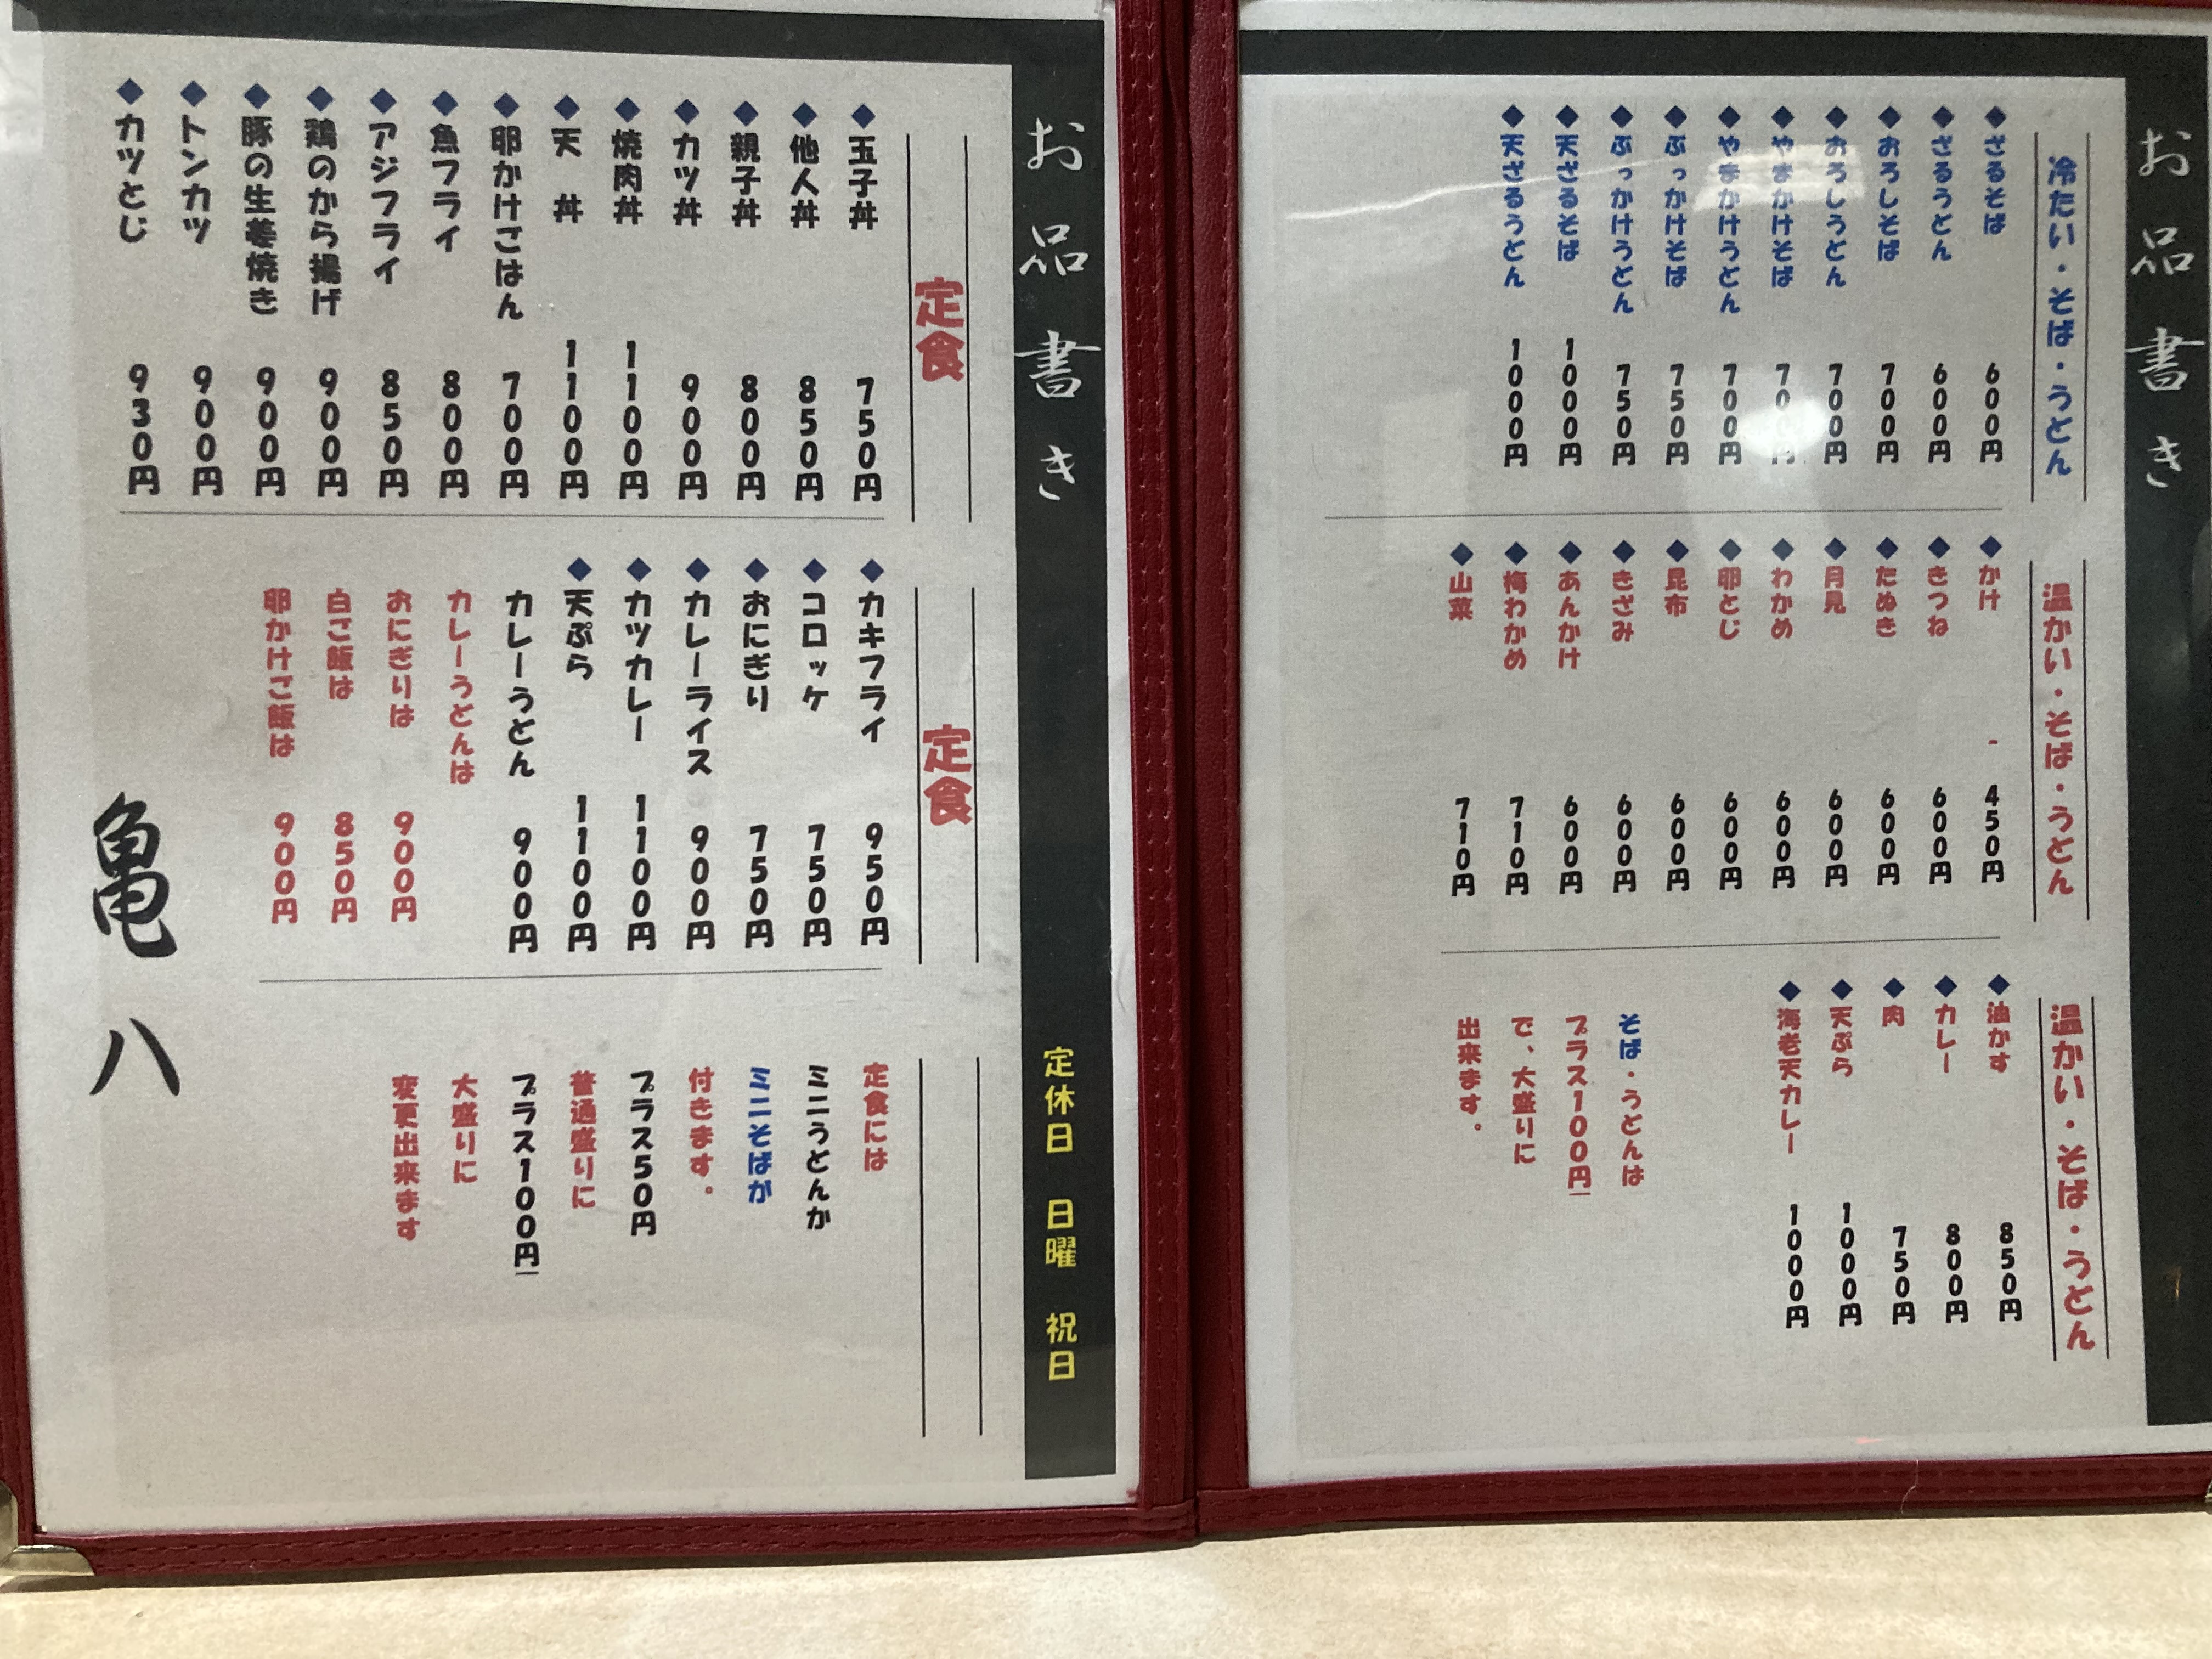 お品書き
冷たい・そば・うどん
◆ざるそば 600円
◆ざるうどん 600円
◆おろしそば 700円
◆おろしうどん 700円
◆やまかけそば 700円
◆やまかけうどん 700円
◆ぶっかけそば 750円
◆ぶっかけうどん 750円
◆天ざるそば 1000円
◆天ざるうどん 1000円
温かい・そば・うどん
◆かけ 450円
◆きつね 600円
◆たぬき 600円
◆月見 600円
◆わかめ 600円
◆卵とじ 600円
◆昆布 600円
◆きざみ 600円
◆あんかけ 600円
◆梅わかめ 710円
◆山菜 710円
温かい・そば・うどん
◆油かす 850円
◆カレー 800円
◆肉 750円
◆天ぷら 1000円
◆海老天カレー 1000円
そば・うどんは
プラス100円
で、大盛りに
出来ます。
お品書き 定休日 日曜 祝日
定食
◆玉子丼 750円
◆他人丼 850円
◆親子丼 800円
◆カツ丼 900円
◆焼肉丼 1100円
◆天 丼 1100円
◆卵かけごはん 700円
◆魚フライ 800円
◆アジフライ 850円
◆鶏のから揚げ 900円
◆豚の生姜焼き 900円
◆トンカツ 900円
◆カツとじ 930円
定食
◆カキフライ 950円
◆コロッケ 750円
◆おにぎり 750円
◆カレーライス 900円
◆カツカレー 1100円
◆天ぷら 1100円
カレーうどん 900円
カレーうどんは
おにぎりは 900円
白ご飯は 850円
卵かけご飯は 900円
定食には
ミニうどんか
ミニそばが
付きます。
プラス50円
普通盛りに
プラス100円
大盛りに
変更出来ます
亀八